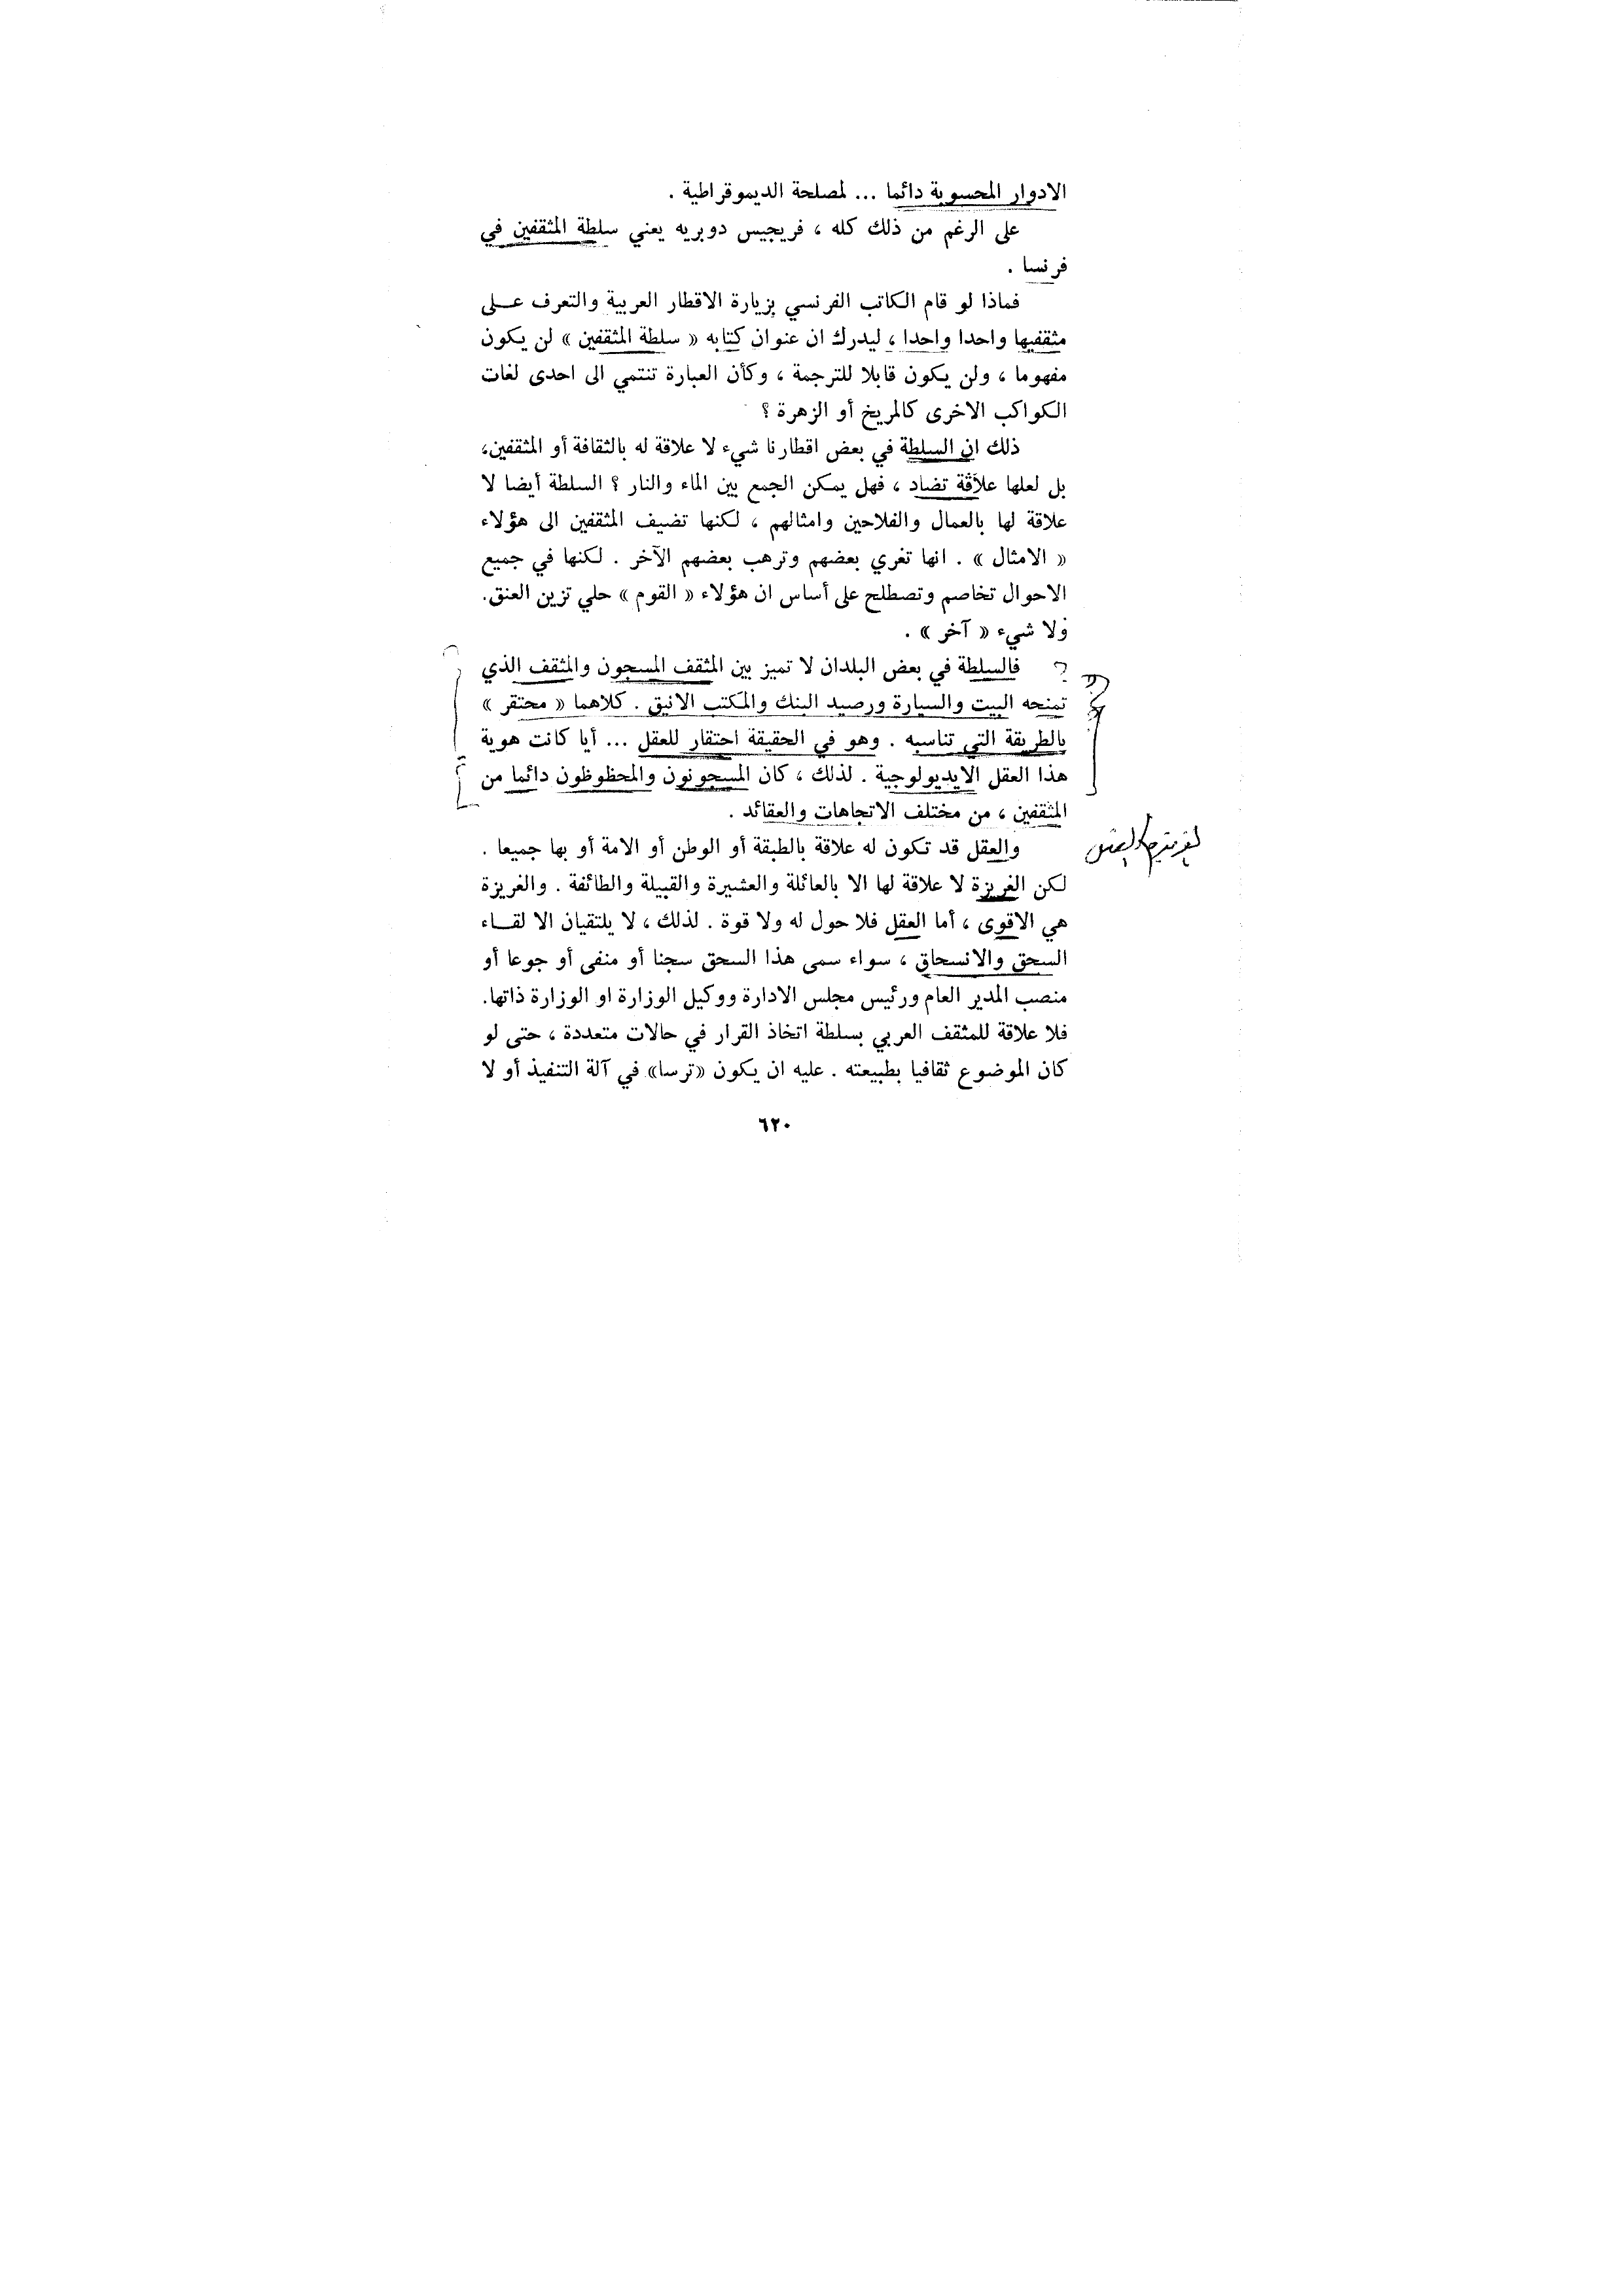 الادوار المحسوبة دائما ... لمصلحة الديموقراطية .
على الرغم من ذلك كله ، فريجيس دوبريه يعني سلطة المثقفين في
فرنسا .
فماذا لو قام الكاتب الفرنسي بزيارة الاقطار العربية والتعرف على
مثقفيها واحدا واحدا ، ليدرك ان عنوان كتابه « سلطة المثقفين » لن يكون
مفهوما ، ولن يكون قابلا للترجمة ، وكأن العبارة تنتمي الى احدى لغات
الكواكب الاخرى كالمريخ أو الزهرة ؟
ذلك ان السلطة في بعض اقطارنا شيء لا علاقة له بالثقافة أو المثقفين،
بل لعلها علاقة تضاد ، فهل يمكن الجمع بين الماء والنار ؟ السلطة أيضا لا
علاقة لها بالعمال والفلاحين وامثالهم ، لكنها تضيف المثقفين الى هؤلاء
« الامثال » . انها تغري بعضهم وترهب بعضهم الآخر . لكنها في جميع
الاحوال تخاصم وتصطلح على أساس ان هؤلاء « القوم » حلي تزين العنق.
ولا شيء « آخر » .
فالسلطة في بعض البلدان لا تميز بين المثقف المسجون والمثقف الذي
تمنحه البيت والسيارة ورصيد البنك والمكتب الانيق . كلاهما « محتقر »
بالطريقة التي تناسبه . وهو في الحقيقة احتقار للعقل ... أيا كانت هوية
هذا العقل الايديولوجية . لذلك ، كان المسجونون والمحظوظون دائما من
المثقفين ، من مختلف الاتجاهات والعقائد .
والعقل قد تكون له علاقة بالطبقة أو الوطن أو الامة أو بها جميعا .
لكن الغريزة لا علاقة لها الا بالعائلة والعشيرة والقبيلة والطائفة . والغريزة
هي الاقوى ، أما العقل فلا حول له ولا قوة . لذلك ، لا يلتقيان الا لقاء
السحق والانسحاق ، سواء سمى هذا السحق سجنا أو منفى أو جوعا أو
منصب المدير العام ورئيس مجلس الادارة ووكيل الوزارة او الوزارة ذاتها.
فلا علاقة للمثقف العربي بسلطة اتخاذ القرار في حالات متعددة ، حتى لو
كان الموضوع ثقافيا بطبيعته . عليه ان يكون «ترسا» في آلة التنفيذ أو لا
٦٢٠